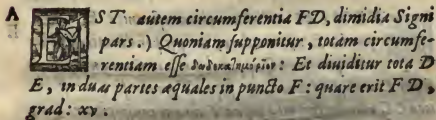 A
EST autem circumferentia FD, dimidia Signi
pars.) Quoniam supponitur, totam circumfe-
rentiam esse δωδεκατημόριον: Et diuiditur tota D
E, in duas partes æquales in puncto F: quare erit F D,
grad: xv: